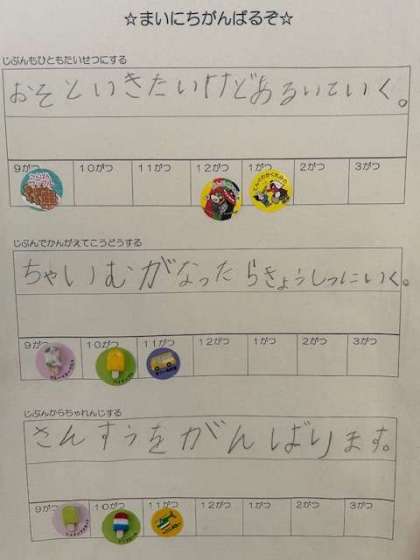 ☆まいにちがんばるぞ☆
じぶんもひともたいせつにする
おそといきたいけどあるいていく。
9がつ 10がつ 11がつ 12がつ 1がつ 2がつ 3がつ
じぶんでかんがえてこうどうする
ちゃいむがなったらきょうしつにいく。
9がつ 10がつ 11がつ 12がつ 1がつ 2がつ 3がつ
じぶんからちゃれんじする
さんすうをがんばります。
9がつ 10がつ 11がつ 12がつ 1がつ 2がつ 3がつ